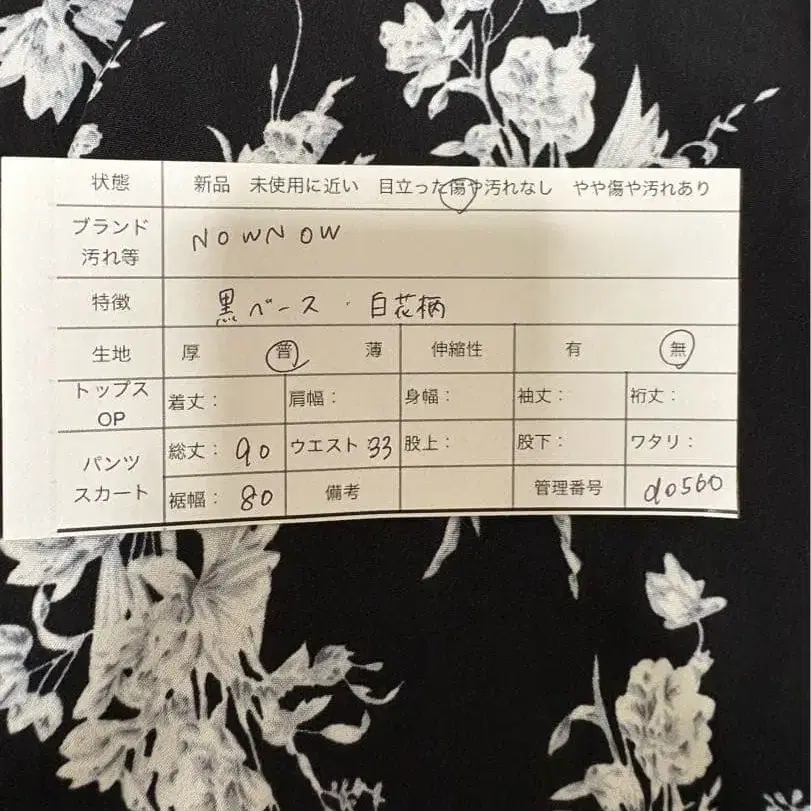 状態 新品 未使用に近い 目立った傷や汚れなし やや傷や汚れあり
ブランド
汚れ等
NOWNOW
特徴 黒ベース・白花柄
生地 厚 普 薄 伸縮性 有 無
トップス
OP
着丈: 肩幅: 身幅: 袖丈: 裄丈:
パンツ
スカート
総丈: 90 ウエスト 33 股上: 股下: ワタリ:
裾幅: 80 備考 管理番号 d0560